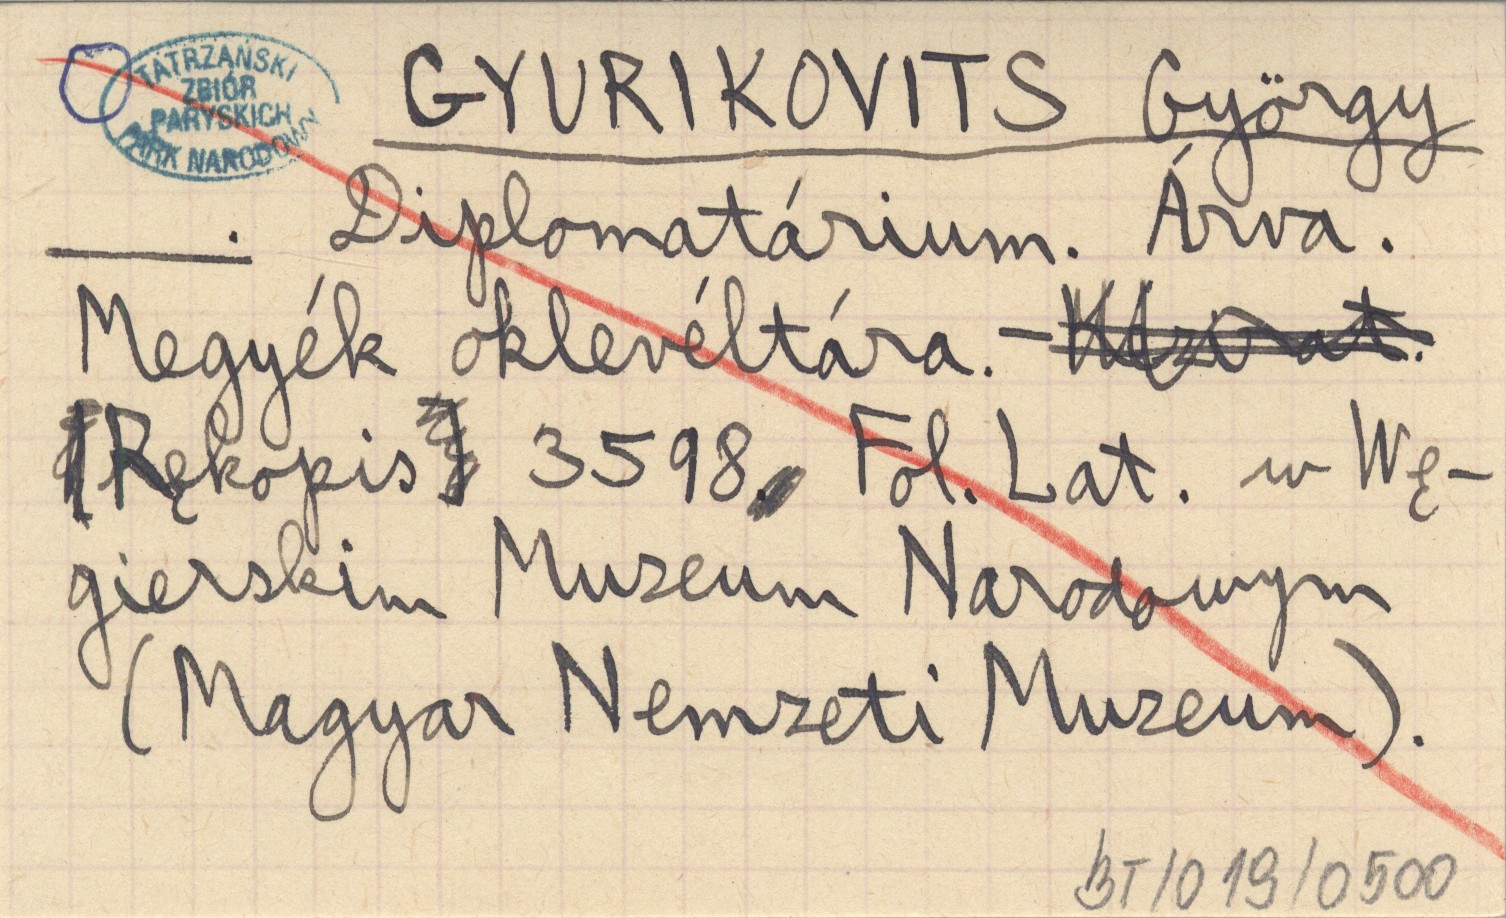 TATRZAŃSKI
ZBIÓR
PARYSKICH
PARK NARODOWY
GYURIKOVITS György
. Diplomatárium. Árva.
Megyék oklevéltára. –
[Rękopis] 3598. Fol. Lat. w Wę-
gierskim Muzeum Narodowym
(Magyar Nemzeti Muzeum).
BT/019/0500